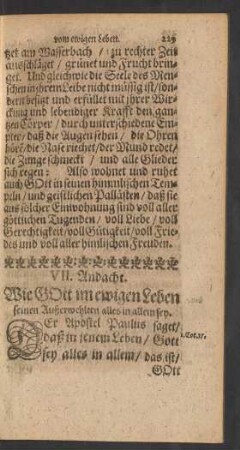 vom ewigen Leben. 229
tzet am Wasserbach / zu rechter Zeit
ausschläget / grünet und Frucht brin-
get. Und gleichwie die Seele des Men-
schen in ihren Leibe nicht müssig ist / son-
dern besitzt und erfüllet mit jhrer Wir-
ckung und lebendiger Krafft den gan-
tzen Cörper / durch unterschiedene En-
der / daß die Augen sehen / die Ohren
hörē / die Nase riechet / der Mund redet /
die Zunge schmeckt / und alle Glieder
sich regen: Also wohnet und ruhet
auch GOtt in seinen himmlischen Tem-
peln / und geistlichen Pallästen / daß sie
aus solcher Einwohnung sind voll aller
göttlichen Tugenden / voll Liebe / voll
Gerechtigkeit / voll Gütigkeit / voll Frie-
des und voll aller himlischen Freuden.
VII. Andacht.
Wie GOtt im ewigen Leben
seinen Außerwehlten alles in allem sey.
DEr Apostel Paulus saget /
daß in jenem Leben / Gott
sey alles in allem / das ist /
GOtt